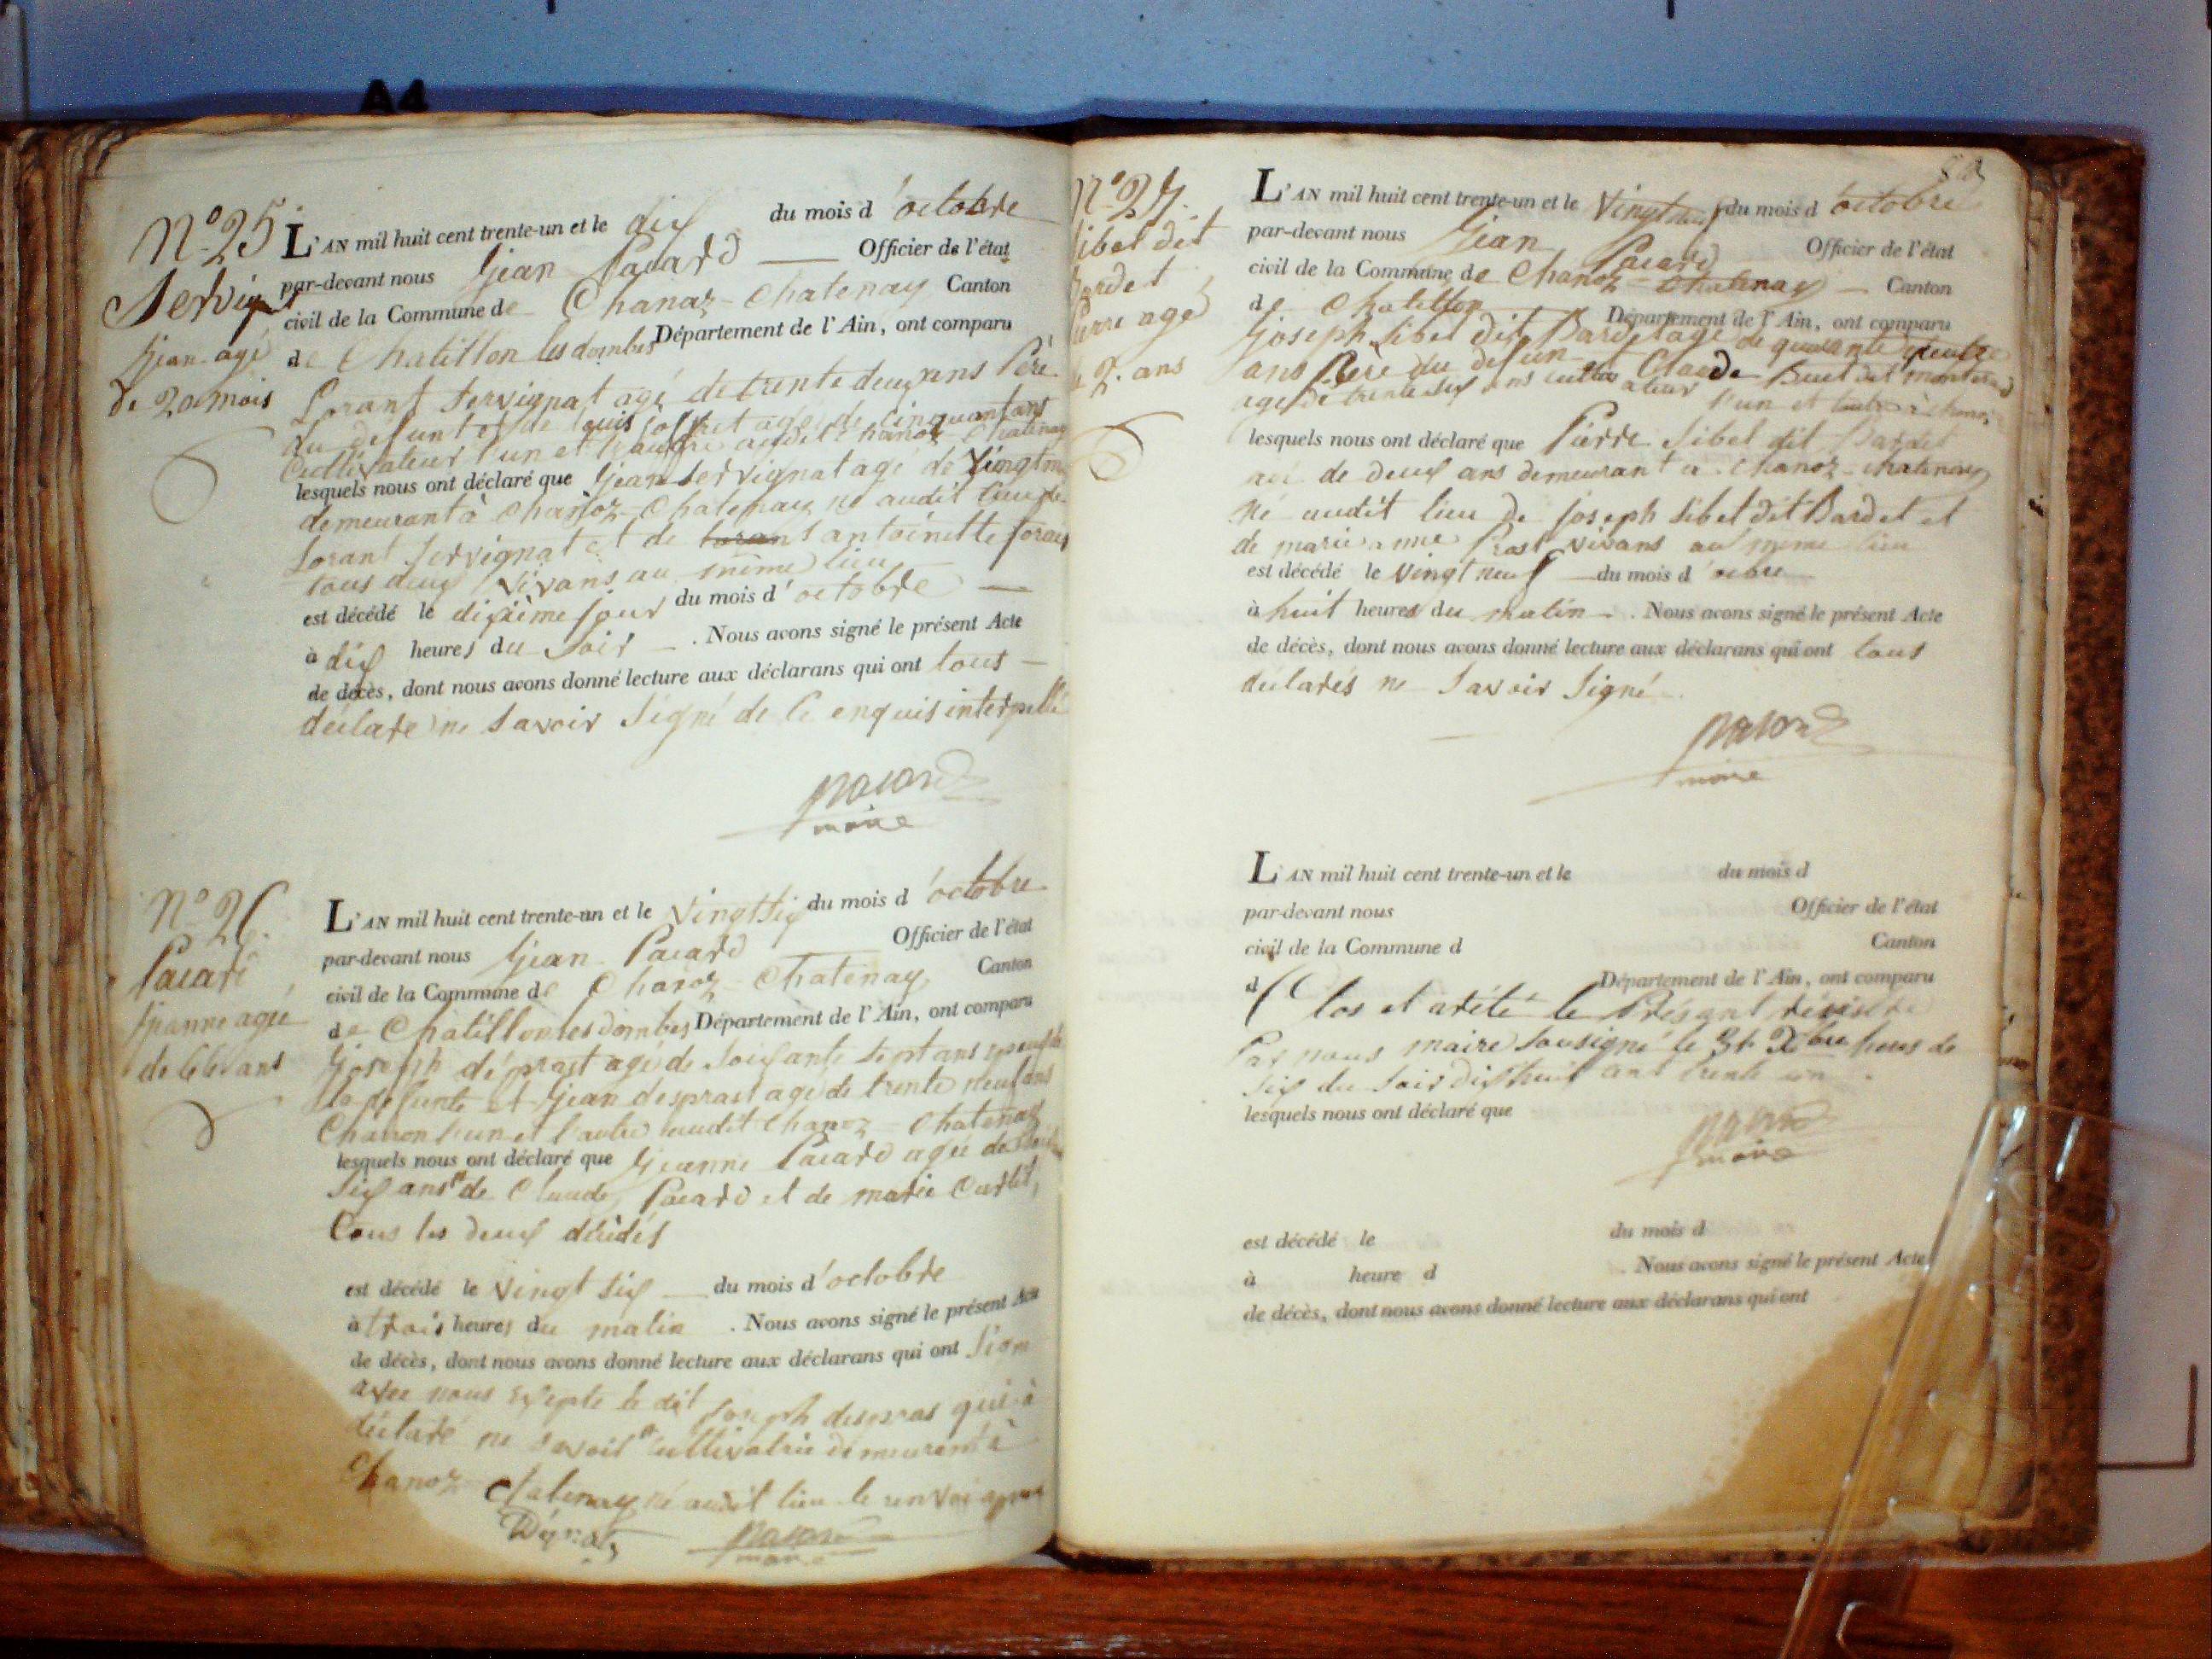 A4
N° 25
Servignat
Jean agé
de 20 mois
L'AN mil huit cent trente-un et le dix du mois d'octobre
par-devant nous Jean Pacard Officier de l'état
civil de la Commune de Chanoz-Chatenay Canton
de Chatillon les dombes Département de l'Ain, ont comparu
Lorant Servignat agé de trente deux ans Père
du defunt et de Louis joffret agé de cinquant ans
Cultivateur l'un et l'autre audit Chanoz Chatenay
lesquels nous ont déclaré que Jean Servignat agé de Vingt m
demeurant à Chanoz-Chatenay né audit lieu de
Lorant Servignat et de antoinette
tous deux Vivans au même lieu
est décédé le dixième jour du mois d'octobre
à dix heures du Soir . Nous avons signé le présent Acte
de décès, dont nous avons donné lecture aux déclarans qui ont tous
déclare ne Savoir Signé de ce enquis interpellé
Pacard
maire
N° 26
Pacard
Jeanne agée
de 66 ans
L'AN mil huit cent trente-un et le Vingt Six du mois d'octobre
par-devant nous Jean Pacard Officier de l'état
civil de la Commune de Chanoz-Chatenay Canton
de Chatillon les dombes Département de l'Ain, ont comparu
Joseph déprast agé de Soixante Sept ans
la defunte et Jean desprast agé de trente neuf ans
Charron l'un et l'autre audit Chanoz-Chatenay
lesquels nous ont déclaré que Jeanne Pacard agée de
Six ans de Claude Pacard et de marie Curtet,
Tous les deux décédés
est décédé le Vingt Six du mois d'octobre
à trois heures du matin . Nous avons signé le présent Acte
de décès, dont nous avons donné lecture aux déclarans qui ont Signé
avec nous Excepte le dit Joseph despras qui à
déclaré ne Savoir cultivatrice demeurant à
Chanoz-Chatenay né audit lieu le renvoi
Pacard
maire
N° 27.
Sibel dit
Bardet
Pierre agé
de 2. ans
L'AN mil huit cent trente-un et le Vingt neuf du mois d'octobre
par-devant nous Jean Pacard Officier de l'état
civil de la Commune de Chanoz-Chatenay Canton
de Chatillon Département de l'Ain, ont comparu
Joseph Sibel dit Bardet agé de quarante quatre
ans Père du defun et Claude dit
agé de trente Six ans cultivateur l'un et l'autre à Chanoz
lesquels nous ont déclaré que Pierre Sibel dit Bardet
agé de deux ans demeurant à Chanoz-Chatenay
né audit lieu de joseph Sibel dit Bardet et
de marie anne Prost Vivans au même lieu
est décédé le Vingt neuf du mois d'octobre
à huit heures du matin . Nous avons signé le présent Acte
de décès, dont nous avons donné lecture aux déclarans qui ont tous
déclarés ne Savoir Signé
Pacard
maire
L'AN mil huit cent trente-un et le du mois d
par-devant nous Officier de l'état
civil de la Commune d Canton
d Département de l'Ain, ont comparu
Clos et arété le Présant régistre
Par nous maire Sousigné le 31 Xbre heure de
Six du Soir dix huit cent trente un
lesquels nous ont déclaré que
Pacard
maire
est décédé le du mois d
à heure d . Nous avons signé le présent Acte
de décès, dont nous avons donné lecture aux déclarans qui ont